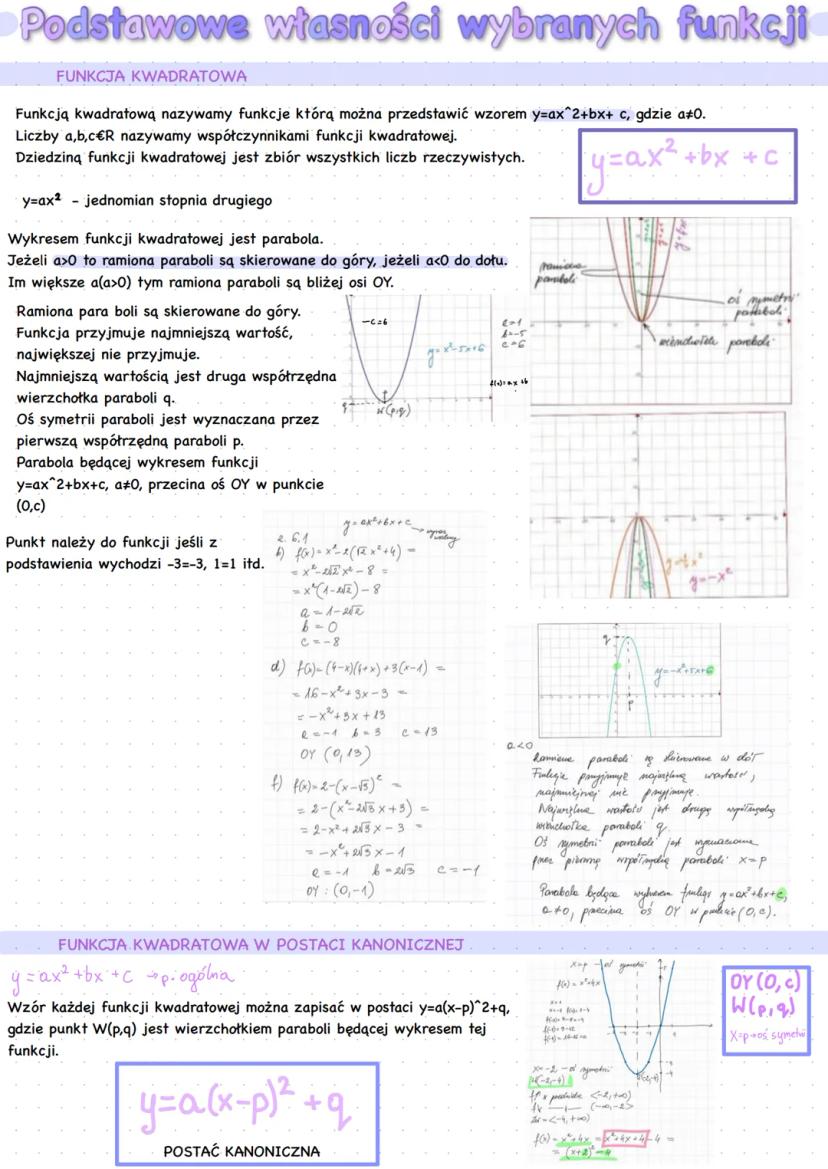 Podstawowe własności wybranych funkcji
FUNKCJA KWADRATOWA
Funkcją kwadratową nazywamy funkcje którą można przedstawić wzorem y=ax^2+bx+ c, gdzie a≠0.
Liczby a,b,c€R nazywamy współczynnikami funkcji kwadratowej.
Dziedziną funkcji kwadratowej jest zbiór wszystkich liczb rzeczywistych.
y=ax²+bx+c
y=ax² - jednomian stopnia drugiego
Wykresem funkcji kwadratowej jest parabola.
Jeżeli a>0 to ramiona paraboli są skierowane do góry, jeżeli a<0 do dołu.
Im większe a(a>0) tym ramiona paraboli są bliżej osi OY.
ramiona
paraboli
oś symetrii
paraboli
wierzchołek paraboli
Ramiona para boli są skierowane do góry.
Funkcja przyjmuje najmniejszą wartość,
największej nie przyjmuje.
Najmniejszą wartością jest druga współrzędna
wierzchołka paraboli q.
Oś symetrii paraboli jest wyznaczana przez
pierwszą współrzędną paraboli p.
Parabola będącej wykresem funkcji
y=ax^2+bx+c, a≠0, przecina oś OY w punkcie
(0,c)
-c=6
y=x²-5x+6
q
W(p,q)
a=1
b=-5
c=6
Punkt należy do funkcji jeśli z
podstawienia wychodzi -3=-3, 1=1 itd.
y=ax²+bx+c
wyraz
wolny
z. 6.1
b) f(x)=x²-2(√2 x²+4)=
=x²-2√2 x²-8=
=x²(1-2√2)-8
a=1-2√2
b=0
c=-8
d) f(x)=(4-x)(4+x)+3(x-1)=
=16-x²+3x-3=
=-x²+3x+13
a=-1 b=3 c=13
OY (0,13)
f) f(x)=2-(x-√3)²=
=2-(x²-2√3x+3)=
=2-x²+2√3x-3=
=-x²+2√3x-1
a=-1 b=2√3 c=-1
OY: (0,-1)
y=-x²
q
p
y=-x²+5x+6
a<0
Ramiona paraboli są skierowane w dół
Funkcja przyjmuje największą wartość,
najmniejszej nie przyjmuje.
Największą wartością jest druga współrzędną
wierzchołka paraboli q.
Oś symetrii paraboli jest wyznaczana
przez pierwszą współrzędną paraboli x=p
Parabola będąca wykresem funkcji y=ax²+bx+c,
a≠0, przecina oś OY w punkcie (0,c).
FUNKCJA KWADRATOWA W POSTACI KANONICZNEJ
y=ax²+bx+c → p. ogólna
Wzór każdej funkcji kwadratowej można zapisać w postaci y=a(x-p)^2+q,
gdzie punkt W(p,q) jest wierzchołkiem paraboli będącej wykresem tej
funkcji.
y=a(x-p)²+q
POSTAĆ KANONICZNA
x=p → oś symetrii
f(x)=x²+4x
x=-2 - oś symetrii
W(-2,-4)
<-2,+∞)
(-∞,-2>
Zw=<-4,+∞)
f(x)=x²+4x=x²+4x+4-4=
=(x+2)²-4
OY(0,c)
W(p,q)
x=p→oś symetrii